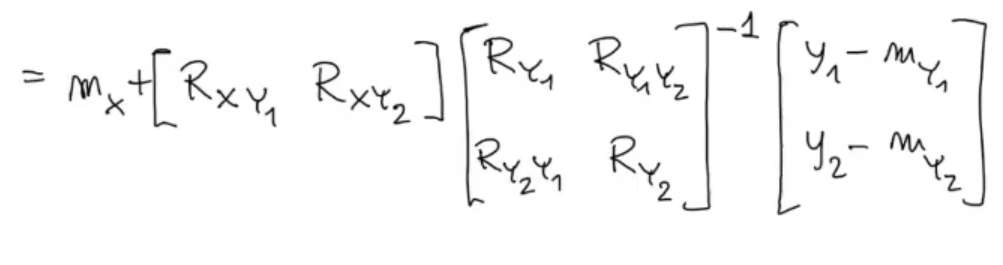 = m_X + [ R_{XY_1} R_{XY_2} ] [ R_{Y_1} R_{Y_1Y_2} ; R_{Y_2Y_1} R_{Y_2} ]^{-1} [ y_1 - m_{Y_1} ; y_2 - m_{Y_2} ]